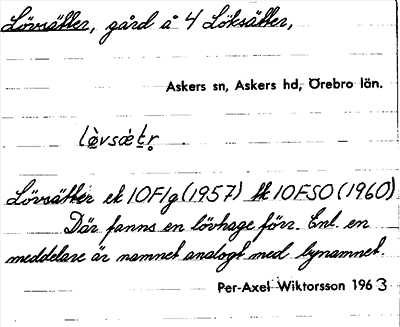 Lövsätter, gård å 4 Löksätter,
Askers sn, Askers hd, Örebro län.
lø̀vsæ̀tr̥
Lövsätter ek 10F1g (1957) tk 10FSO (1960)
Där fanns en lövhage förr. Enl. en
meddelare är namnet analogt med bynamnet.
Per-Axel Wiktorsson 1963